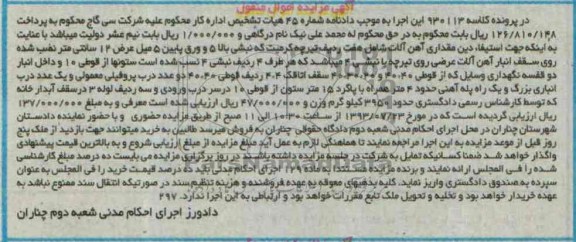 آگهی مزایده اموال منقول
در پرونده کلاسه ۹۳۰۱۱۳ این اجرا به موجب دادنامه شماره ۴۵ هیات تشخیص اداره کار محکوم علیه شرکت سی گاچ محکوم به پرداخت
۱۲۶/۸۱۰/۱۴۸ ریال بابت محکوم به در حق محکوم له محمد علی نیک نام درگاهی و ۱/۰۰۰/۰۰۰ ریال بابت نیم عشر دولتی میباشد با عنایت
به اینکه جهت استیفاء دین مقداری آهن آلات شامل هفت ردیف تیرچه کرمیت که نبشی بالا ۵ و ورق پایین ۵ میل عرض ۱۲ سانتی متر نصب شده
روی سقف انبار آهن آلات عرضی روی تیرچه با نبشی ۴ میباشد که هر طرف ۴ ردیف نبشی ۴ نصب شده است ستونها از قوطی ۱۰ و داخل انبار
دو قفسه نگهداری وسایل که از قوطی ۴۰.۴۰ سقف اتاقک ۴.۴ ردیف قوطی ۴۰.۴۰ دو عدد درب پروفیلی معمولی و یک عدد درب
انباری بزرگ و یک راه پله آهنی حدود ۴ متر همراه با پاگرد ۱۵ متر ستون از قوطی ۱۰ درسر درب ورودی و سه ردیف لوله ۳ درسقف آبدار خانه
که توسط کارشناس رسمی دادگستری حدود ۳۹۵۰ کیلو گرم وزن و ۴۷/۰۰۰/۰۰۰ ریال ارزیابی شده است معرفی و به مبلغ ۱۳۷/۰۰۰/۰۰۰
ریال ارزیابی گردیده است که در مورخ ۱۳۹۳/۰۷/۲۳ از ساعت ۱۰:۳۰ الی ۱۱ صبح از طریق مزایده حضوری و با حضور نماینده دادستان
شهرستان چناران در محل اجرای احکام مدنی شعبه دوم دادگاه حقوقی چناران به فروش میرسد طالبین به خرید میتوانند جهت بازدید از ملک پنج
روز قبل از موعد مزایده به این اجرا مراجعه نمایند تا هماهنگی لازم به عمل آید مبلغ مزایده از مبلغ ارزیابی شروع و به بالاترین قیمت پیشنهادی
واگذار خواهد شد ضمنا کسانیکه تمایل به شرکت در جلسه مزایده داشته باشند در روز برگزاری مزایده می بایست ده درصد مبلغ کارشناسی
شده را فی المجلس ارائه نمایند و برنده مزایده مستندا به ماده ۱۲۹ اجرای احکام مدنی باید ده درصد قیمت خرید را فی المجلس به عنوان
سپرده به صندوق دادگستری واریز نماید. کلیه بدهیهای معوقه به عهده فروشنده و هزینه تنظیم سند در صورتیکه انتقال سند ممنوع نباشد به
عهده خریدار خواهد بود و تخلیه و تحویل ملک تابع مقررات خواهد بود و ارتباطی به این اجرا ندارد. ۲۹۷
دادورز اجرای احکام مدنی شعبه دوم چناران